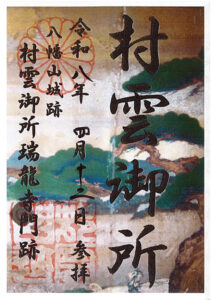 村雲御所
令和八年 四月十二日 参拝
八幡山城跡
村雲御所瑞龍寺門跡